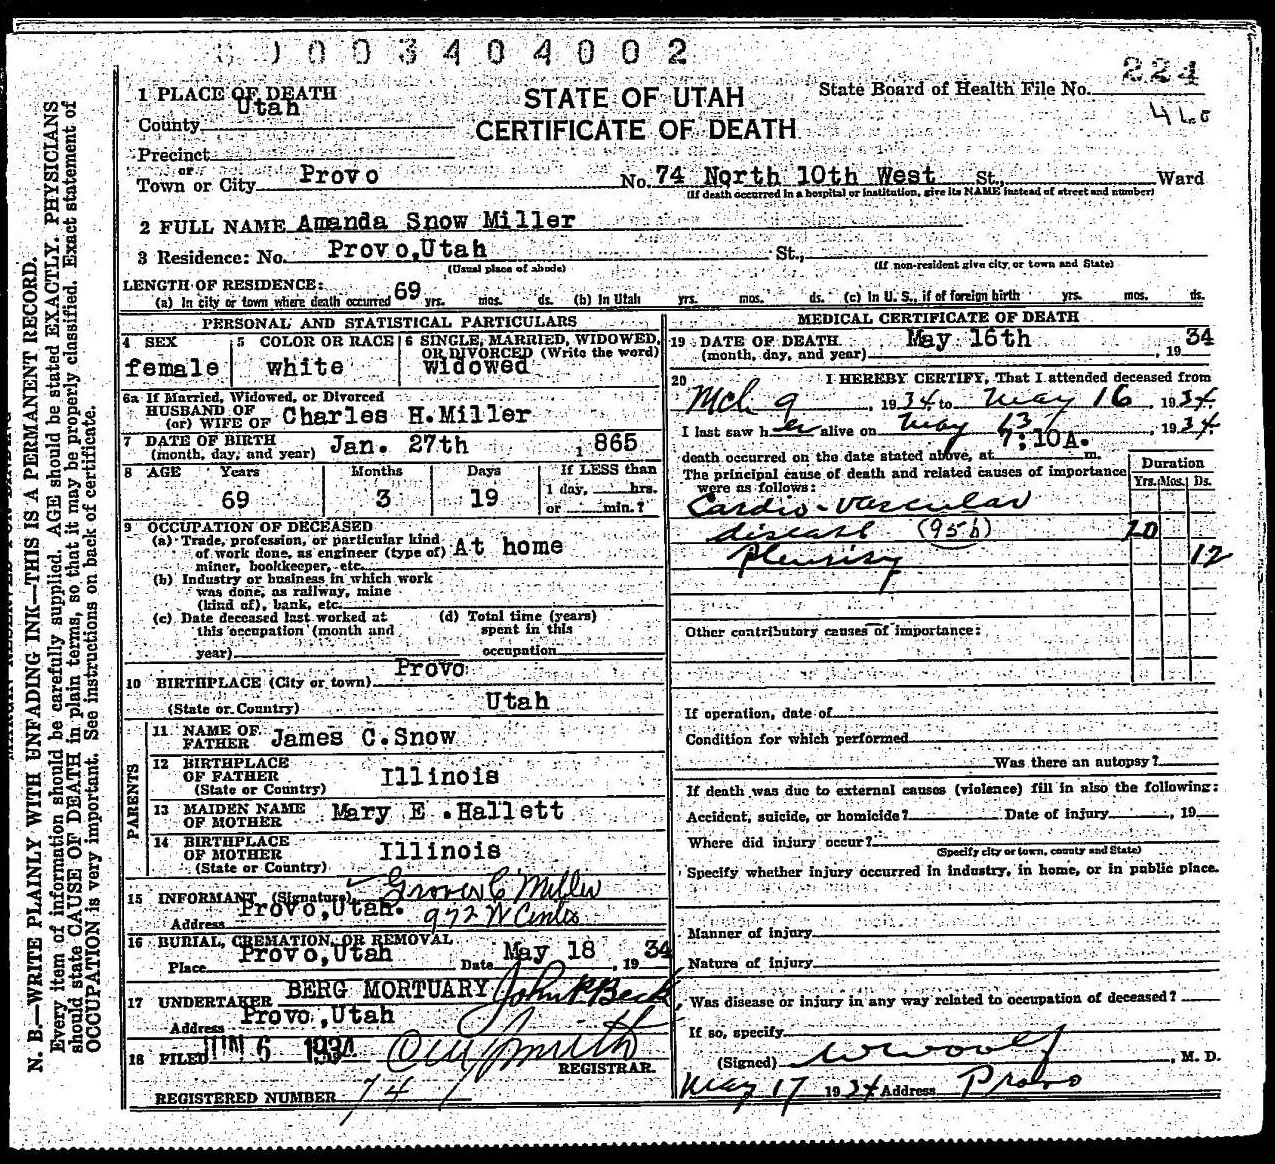 0003404002
STATE OF UTAH
CERTIFICATE OF DEATH
State Board of Health File No. 224
1 PLACE OF DEATH
County Utah
Precinct
or
Town or City Provo No. 74 North 10th West St., Ward
(If death occurred in a hospital or institution, give its NAME instead of street and number)
2 FULL NAME Amanda Snow Miller
3 Residence: No. Provo,Utah St.,
(Usual place of abode) (If non-resident give city, or town and State)
LENGTH OF RESIDENCE:
(a) In city or town where death occurred 69 yrs. mos. ds. (b) In Utah yrs. mos. ds. (c) In U. S., if of foreign birth yrs. mos. ds.
PERSONAL AND STATISTICAL PARTICULARS
4 SEX female
5 COLOR OR RACE white
6 SINGLE, MARRIED, WIDOWED,
OR DIVORCED (Write the word)
widowed
6a If Married, Widowed, or Divorced
HUSBAND OF
(or) WIFE OF Charles H.Miller
7 DATE OF BIRTH
(month, day, and year) Jan. 27th 1865
8 AGE Years Months Days If LESS than
69 3 19 1 day, hrs.
or min.?
9 OCCUPATION OF DECEASED
(a) Trade, profession, or particular kind
of work done, as engineer (type of) At home
miner, bookkeeper, etc.
(b) Industry or business in which work
was done, as railway, mine
(kind of), bank, etc.
(c) Date deceased last worked at (d) Total time (years)
this occupation (month and spent in this
year) occupation
10 BIRTHPLACE (City or town) Provo
(State or Country) Utah
PARENTS
11 NAME OF
FATHER James C.Snow
12 BIRTHPLACE
OF FATHER Illinois
(State or Country)
13 MAIDEN NAME
OF MOTHER Mary E .Hallett
14 BIRTHPLACE
OF MOTHER Illinois
(State or Country)
15 INFORMANT (Signature) Grover C Miller
Address Provo,Utah. 972 W Center
16 BURIAL, CREMATION, OR REMOVAL
Place Provo,Utah Date May 18, 1934
17 UNDERTAKER BERG MORTUARY John P. Beck
Address Provo,Utah
18 FILED JUN 6 1934 Smith
REGISTRAR.
REGISTERED NUMBER 74
MEDICAL CERTIFICATE OF DEATH
19 DATE OF DEATH
(month, day, and year) May 16th, 1934
20 I HEREBY CERTIFY, That I attended deceased from
Mch 9, 1934, to May 16, 1934.
I last saw her alive on May 13, 1934.
death occurred on the date stated above, at 7:10A. m.
The principal cause of death and related causes of importance
were as follows:
Duration
Yrs. Mos. Ds.
Cardio-vascular
disease (95b) 10
Pleurisy 12
Other contributory causes of importance:
If operation, date of
Condition for which performed
Was there an autopsy?
If death was due to external causes (violence) fill in also the following:
Accident, suicide, or homicide? Date of injury, 19
Where did injury occur?
(Specify city or town, county and State)
Specify whether injury occurred in industry, in home, or in public place.
Manner of injury
Nature of injury
Was disease or injury in any way related to occupation of deceased?
If so, specify
(Signed) W W Woolf, M. D.
May 17 1934 Address Provo
N. B.—WRITE PLAINLY WITH UNFADING INK—THIS IS A PERMANENT RECORD.
Every item of information should be carefully supplied. AGE should be stated EXACTLY. PHYSICIANS
should state CAUSE OF DEATH in plain terms, so that it may be properly classified. Exact statement of
OCCUPATION is very important. See instructions on back of certificate.